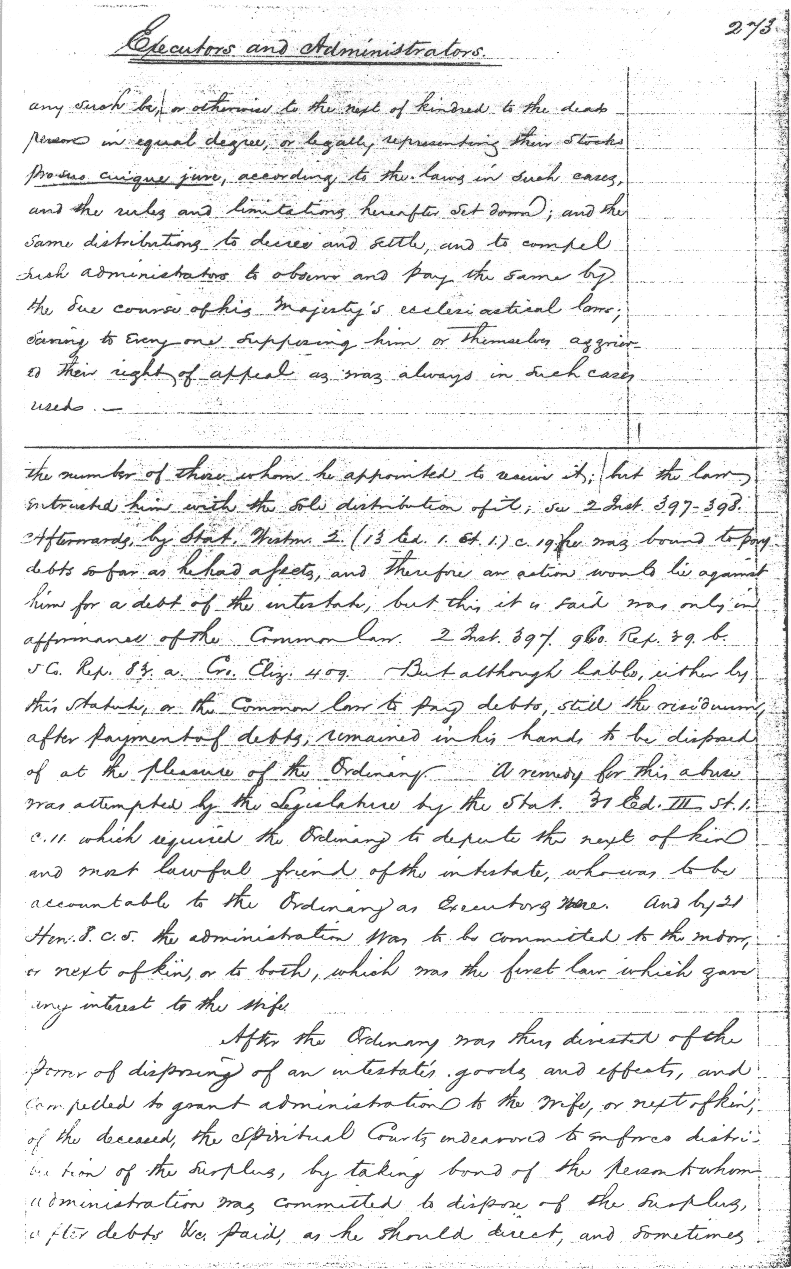 273
Executors and Administrators.
any such be, or otherwise to the next of kindred to the dead
person in equal degree, or legally representing their Stocks
pro suo cuique jure, according to the laws in such cases,
and the rules and limitations hereafter set down; and the
same distributions to decree and settle, and to compel
such administrators to observe and pay the same by
the due course of his Majesty's ecclesiastical laws;
saving to every one supposing him or themselves aggriev-
ed their right of appeal as was always in such cases
used. —
the number of those whom he appointed to receive it; but the law
entrusted him with the sole distribution of it; see 2 Inst. 397-398.
Afterwards, by Stat. Westm. 2. (13 Ed. 1. St. 1.) c. 19, he was bound to pay
debts so far as he had assets, and therefore an action would lie against
him for a debt of the intestate, but this it is said was only in
affirmance of the Common law. 2 Inst. 397. 9 Co. Rep. 39. b.
5 Co. Rep. 83. a. Cro. Eliz. 409. But although liable, either by
this statute, or the Common law to pay debts, still the residuum,
after payment of debts, remained in his hands to be disposed
of at the pleasure of the Ordinary. A remedy for this abuse
was attempted by the Legislature by the Stat. 31 Ed. III St. 1.
c. 11. which required the Ordinary to depute the next of kin
and most lawful friend of the intestate, who was to be
accountable to the Ordinary as Executors were. And by 21
Hen. 8. c. 5. the administration was to be committed to the widow,
or next of kin, or to both, which was the first law which gave
any interest to the wife.
After the Ordinary was thus divested of the
power of disposing of an intestate's goods and effects, and
compelled to grant administration to the wife, or next of kin,
of the deceased, the Spiritual Courts endeavored to enforce distri-
bution of the surplus, by taking bond of the person to whom
administration was committed to dispose of the surplus,
after debts &c. paid, as he should direct, and sometimes